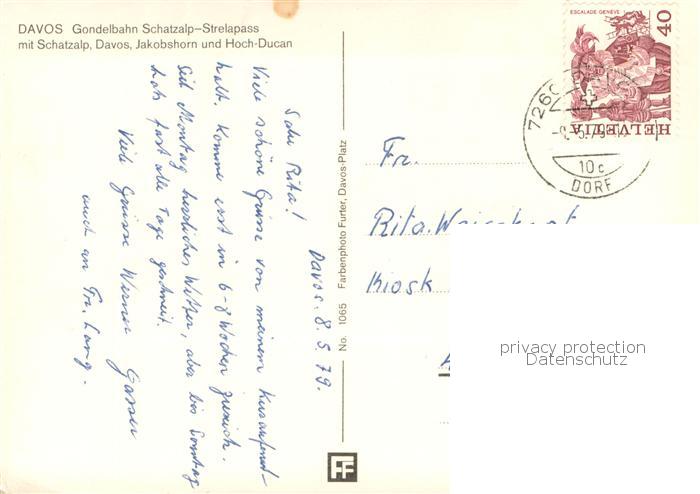 DAVOS Gondelbahn Schatzalp–Strelapass
mit Schatzalp, Davos, Jakobshorn und Hoch-Ducan
Davos. 8.5.79.
Salü Rita!
Viele schöne Grüsse von meinem Kuraufent-
halt. Komme erst in 6-8 Wochen zurück.
Seit Montag herrliches Wetter, aber bis Sonntag
hats fast alle Tage geschneit.
Viele Grüsse Werner Gasser
auch an Fr. Lang.
No. 1065 Farbenphoto Furter, Davos-Platz
FF
ESCALADE GENÈVE
40
HELVETIA
7260
10 c
DORF
Fr.
Rita
Kiosk
privacy protection
Datenschutz